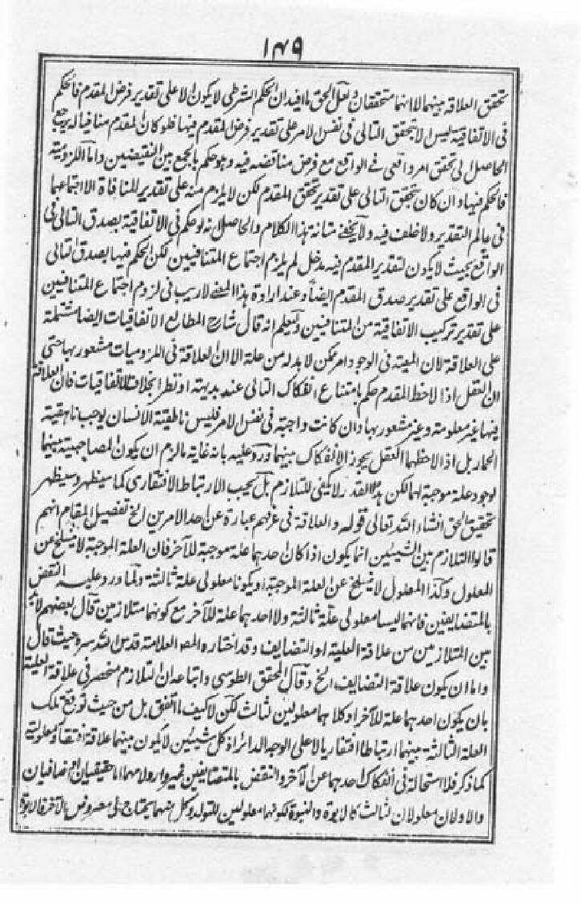 ١٤٩
تحقق العلاقة بينهما لا انهما متحققان ولعل الحق ما افيد ان الحكم الشرطى لا يكون الا على تقدير فرض المقدم فالحكم
فى الاتفاقية ليس الا بتحقق التالى فى نفس الامر على تقدير فرض المقدم فيها فلو كان المقدم منافيا له يرجع
الحاصل الى تحقق امر واقعى فى الواقع مع فرض مناقضه فيه وهو حكم بالجمع بين النقيضين واما اللزومية
فالحكم فيها وان كان بتحقق التالى على تقدير تحقق المقدم لكن لا يلزم منه على تقدير المنافاة الا اجتماعهما
فى عالم التقدير ولا خلف فيه ولا يخفى متانة هذا الكلام والحاصل انه لو حكم فى الاتفاقية بصدق التالى فى
الواقع بحيث لا يكون لتقدير المقدم فيه مدخل لم يلزم اجتماع المتنافيين لكن الحكم فيها بصدق التالى
فى الواقع على تقدير صدق المقدم ايضا وعند ارادة هذا المعنى لا ريب فى لزوم اجتماع المتنافيين
على تقدير تركيب الاتفاقية من المتنافيين وليعلم انه قال شارح المطالع الاتفاقيات ايضا مشتملة
على العلاقة لان المعية فى الوجود امر ممكن لا بد له من علة الا ان العلاقة فى اللزوميات مشعور بها حتى
ان العقل اذا لاحظ المقدم حكم بامتناع انفكاك التالى عنه بديهة او نظرا بخلاف الاتفاقيات فان العلاقة
فيها غير معلومة وغير مشعور بها وان كانت واجبة فى نفس الامر فليس ناطقية الانسان يوجب ناهقية
الحمار بل اذا لاحظهما العقل يجوز الانفكاك بينهما ورد عليه بانه غاية ما لزم ان يكون للمصاحبة بينهما
لوجود علة موجبة لهما لكن هذا القدر لا يكفى للتلازم بل يجب الارتباط الافتقارى كما سيظهر وسيظهر
تحقيق الحق انشاء الله تعالى قوله والعلاقة فى عرفهم عبارة عن احد الامرين الخ تفصيل المقام انهم
قالوا التلازم بين الشيئين انما يكون اذا كان احدهما علة موجبة للآخر فان العلة الموجبة لا تتخلف عن
المعلول وكذا المعلول لا يتخلف عن العلة الموجبة او يكونا معلولى علة ثالثة ولما ورد عليه النقض
بالمتضايفين فانهما ليسا معلولى علة ثالثة ولا احدهما علة للآخر مع كونهما متلازمين قال بعضهم لا بد
بين المتلازمين من علاقة العلية او التضايف وقد اختاره المصـ العلامة قدس الله سره حيث قال
واما ان يكون علاقة التضايف الخ وقال المحقق الطوسى واتباعه ان التلازم منحصر فى علاقة العلية
بان يكون احدهما علة للآخر او كلاهما معلولين لثالث لكن لا كيف ما اتفق بل من حيث توقع تلك
العلة الثالثة بينهما ارتباطا افتقاريا لا على الوجه الدائر اذ كل شيئين لا يكون بينهما علاقة افتقار ومعلولية
كما ذكر فلا استحالة فى انفكاك احدهما عن الآخر والنقض بالمتضايفين غير وارد لانهما اما حقيقيان او اضافيان
والاولان معلولان لثالث كالابوة والبنوة لكونهما معلولين للتولد وكل منهما يحتاج الى معروض بالآخر فالابوة